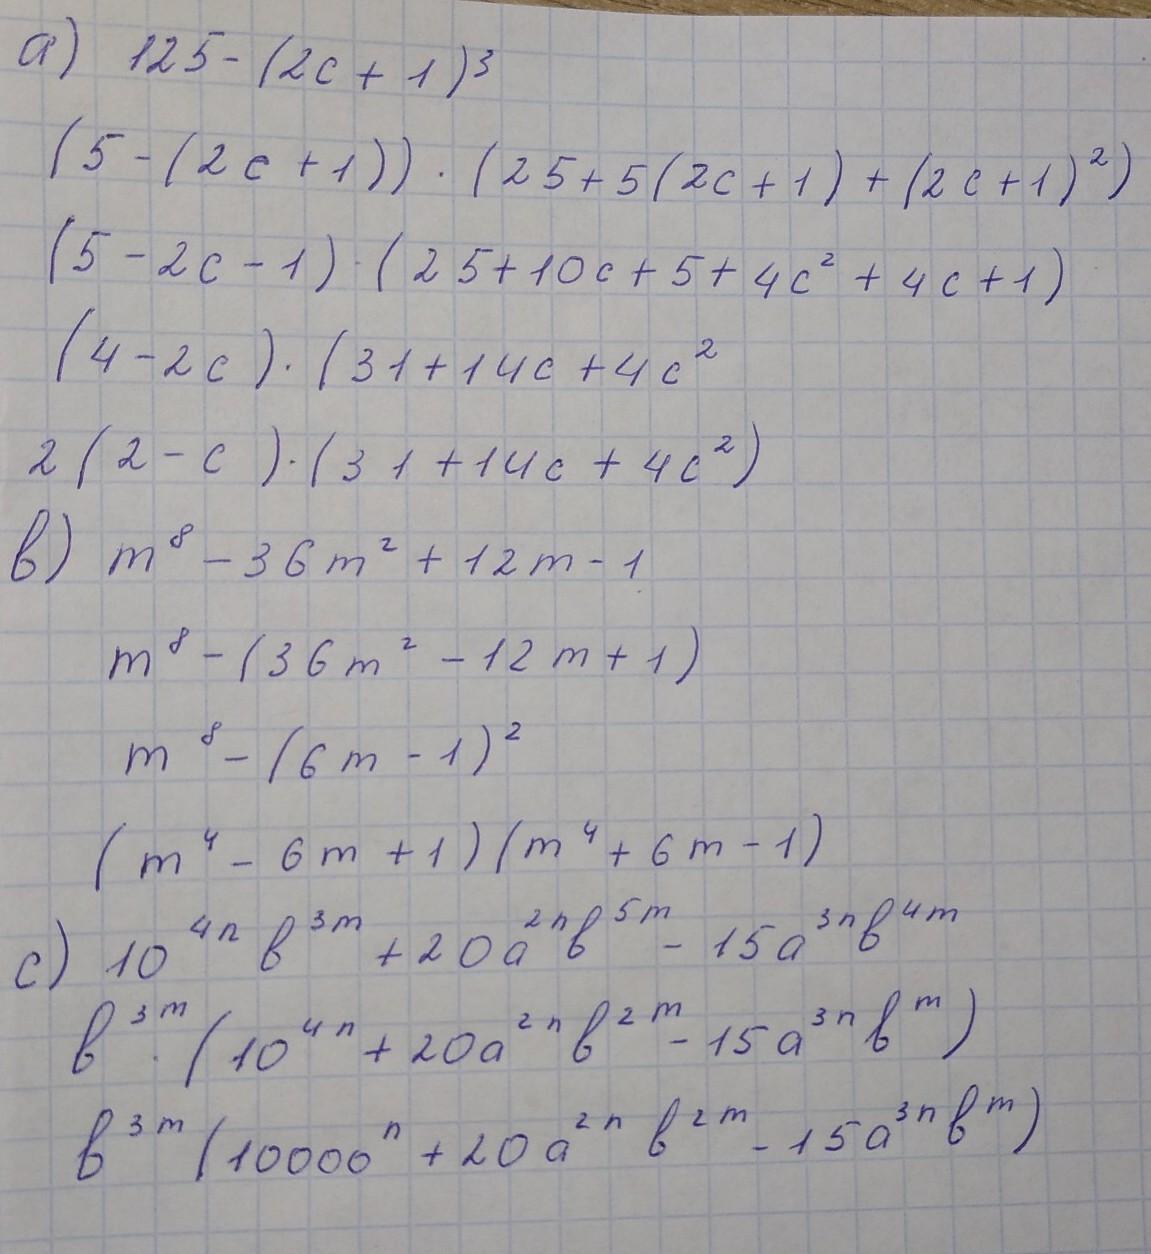 а) 125 - (2c + 1)³
(5 - (2c + 1)) · (25 + 5(2c + 1) + (2c + 1)²)
(5 - 2c - 1) · (25 + 10c + 5 + 4c² + 4c + 1)
(4 - 2c) · (31 + 14c + 4c²
2(2 - c) · (31 + 14c + 4c²)
в) m⁸ - 36m² + 12m - 1
m⁸ - (36m² - 12m + 1)
m⁸ - (6m - 1)²
(m⁴ - 6m + 1)(m⁴ + 6m - 1)
с) 10⁴ⁿ в³ᵐ + 20a²ⁿв⁵ᵐ - 15a³ⁿв⁴ᵐ
в³ᵐ · (10⁴ⁿ + 20a²ⁿ в²ᵐ - 15a³ⁿ вᵐ)
в³ᵐ (10000ⁿ + 20a²ⁿ в²ᵐ - 15a³ⁿ вᵐ)